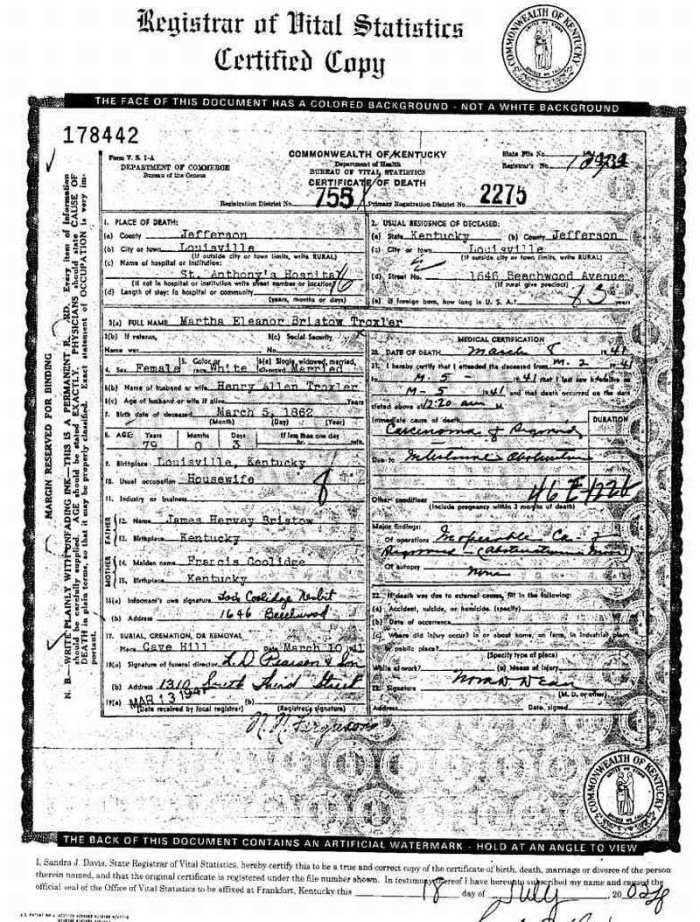 Registrar of Vital Statistics
Certified Copy
COMMONWEALTH OF KENTUCKY
THE FACE OF THIS DOCUMENT HAS A COLORED BACKGROUND - NOT A WHITE BACKGROUND
178442
Form V. S. 1-A
DEPARTMENT OF COMMERCE
Bureau of the Census
COMMONWEALTH OF KENTUCKY
Department of Health
BUREAU OF VITAL STATISTICS
CERTIFICATE OF DEATH
State File No.
Registrar's No.
Registration District No. 755 Primary Registration District No. 2275
MARGIN RESERVED FOR BINDING
N. B.—WRITE PLAINLY WITH UNFADING INK—THIS IS A PERMANENT Every item of information
should be carefully supplied. AGE should be stated EXACTLY. PHYSICIANS should state CAUSE OF
DEATH in plain terms, so that it may be properly classified. Exact statement of OCCUPATION is very im-
portant.
1. PLACE OF DEATH:
(a) County Jefferson
(b) City or town Louisville
(If outside city or town limits, write RURAL)
(c) Name of hospital or institution:
St. Anthony's Hospital
(If not in hospital or institution write street number or location)
(d) Length of stay: In hospital or community
(years, months or days)
2. USUAL RESIDENCE OF DECEASED:
(a) State Kentucky (b) County Jefferson
(c) City or town Louisville
(If outside city or town limits, write RURAL)
(d) Street No. 1646 Beechwood Avenue
(If rural give precinct)
(e) If foreign born, how long in U. S. A.? years
3(a) FULL NAME Martha Eleanor Bristow Troxler
3(b) If veteran,
Name war
3(c) Social Security
No.
4. Sex Female 5. Color or race White 6(a) Single, widowed, married, divorced Married
6(b) Name of husband or wife Henry Allen Troxler
6(c) Age of husband or wife if alive Years
7. Birth date of deceased March 5, 1862
(Month) (Day) (Year)
8. AGE Years Months Days If less than one day
79 0 3 hr. min.
9. Birthplace Louisville, Kentucky
10. Usual occupation Housewife
11. Industry or business
FATHER
12. Name James Hervey Bristow
13. Birthplace Kentucky
MOTHER
14. Maiden name Francis Coolidge
15. Birthplace Kentucky
16(a) Informant's own signature Coolidge Nesbit
(b) Address 1646 Beechwood
17. BURIAL, CREMATION, OR REMOVAL
Place Cave Hill Date March 10 41
18(a) Signature of funeral director L. D. Pearson & Son
(b) Address 1310 South Third Street
19(a) MAR 13 1941 (b)
(Date received by local registrar) (Registrar's signature)
MEDICAL CERTIFICATION
20. DATE OF DEATH March 8 1941
21. I hereby certify that I attended the deceased from M. 2 1941
M. 5 1941 that I last saw alive on
M - 5 - 1941 and that death occurred on the date
stated above at 12:20 am
Immediate cause of death DURATION
Carcinoma of Sigmoid
Due to Intestinal Obstruction
46E
Other conditions
(Include pregnancy within 3 months of death)
Major findings:
Of operations Inoperable Ca. of
Sigmoid
Of autopsy none
22. If death was due to external causes, fill in the following:
(a) Accident, suicide, or homicide (specify)
(b) Date of occurrence
(c) Where did injury occur? In or about home, on farm, in industrial place,
in public place?
(Specify type of place)
While at work? (e) Means of injury
23. Signature
(M. D. or other)
Address Date signed
N. N. Ferguson
COMMONWEALTH OF KENTUCKY
THE BACK OF THIS DOCUMENT CONTAINS AN ARTIFICIAL WATERMARK - HOLD AT AN ANGLE TO VIEW
I, Sandra J. Davis, State Registrar of Vital Statistics, hereby certify this to be a true and correct copy of the certificate of birth, death, marriage or divorce of the person
therein named, and that the original certificate is registered under the file number shown. In testimony thereof I have hereunto subscribed my name and caused the
official seal of the Office of Vital Statistics to be affixed at Frankfort, Kentucky this 18 day of July 20